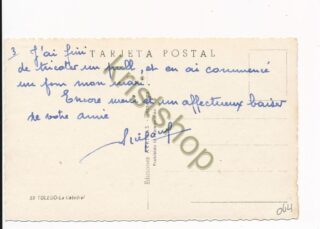 TARJETA POSTAL
3. J'ai fini
de tricoter un pull, et en ai commencé
un pour mon mari.
Encore merci et un affectueux baiser
de votre amie
kristshop
Ediciones
59 TOLEDO-La Catedral
064